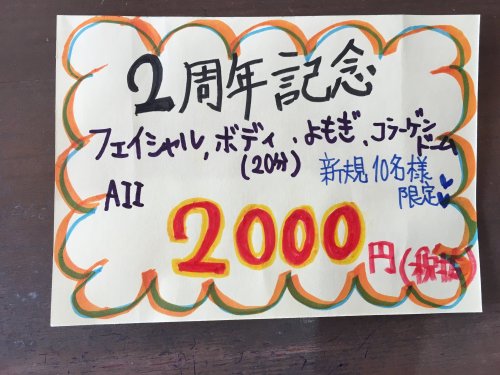 2周年記念
フェイシャル、ボディ、よもぎ、コラーゲン
ドーム
(20分)
新規10名様
限定
AII
2000円